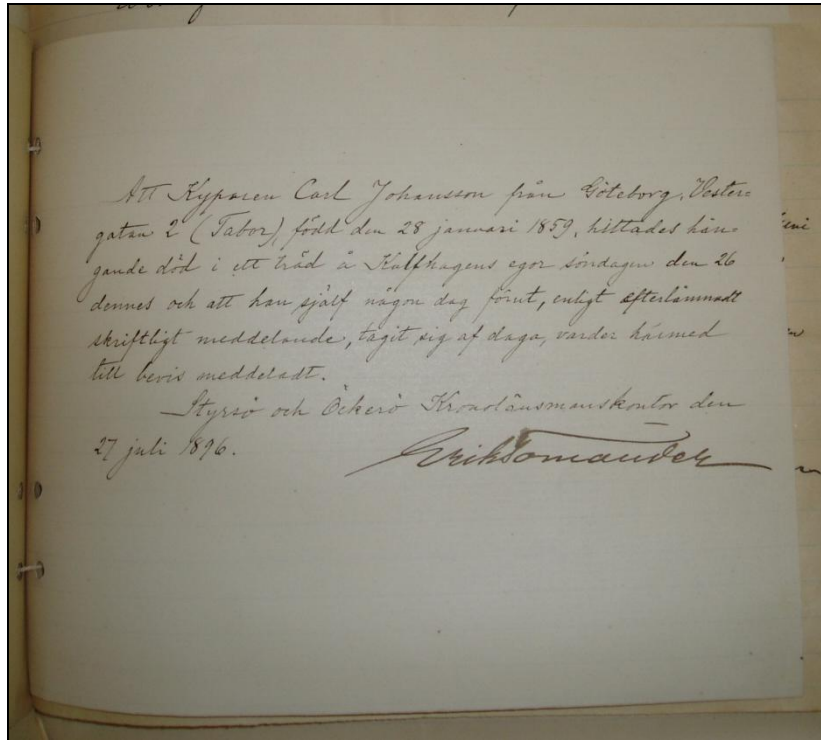 Att Kyparen Carl Johansson från Göteborg, Vester-
gatan 2 (Tabor), född den 28 januari 1859, hittades hän-
gande död i ett träd å Kalfhagens egor söndagen den 26
dennes och att han sjelf någon dag förut, enligt efterlämnadt
skriftligt meddelande, tagit sig af daga, varder härmed
till bevis meddeladt.
Styrsö och Öckerö Kronolänsmanskontor den
27 juli 1896.
Erik Tomander